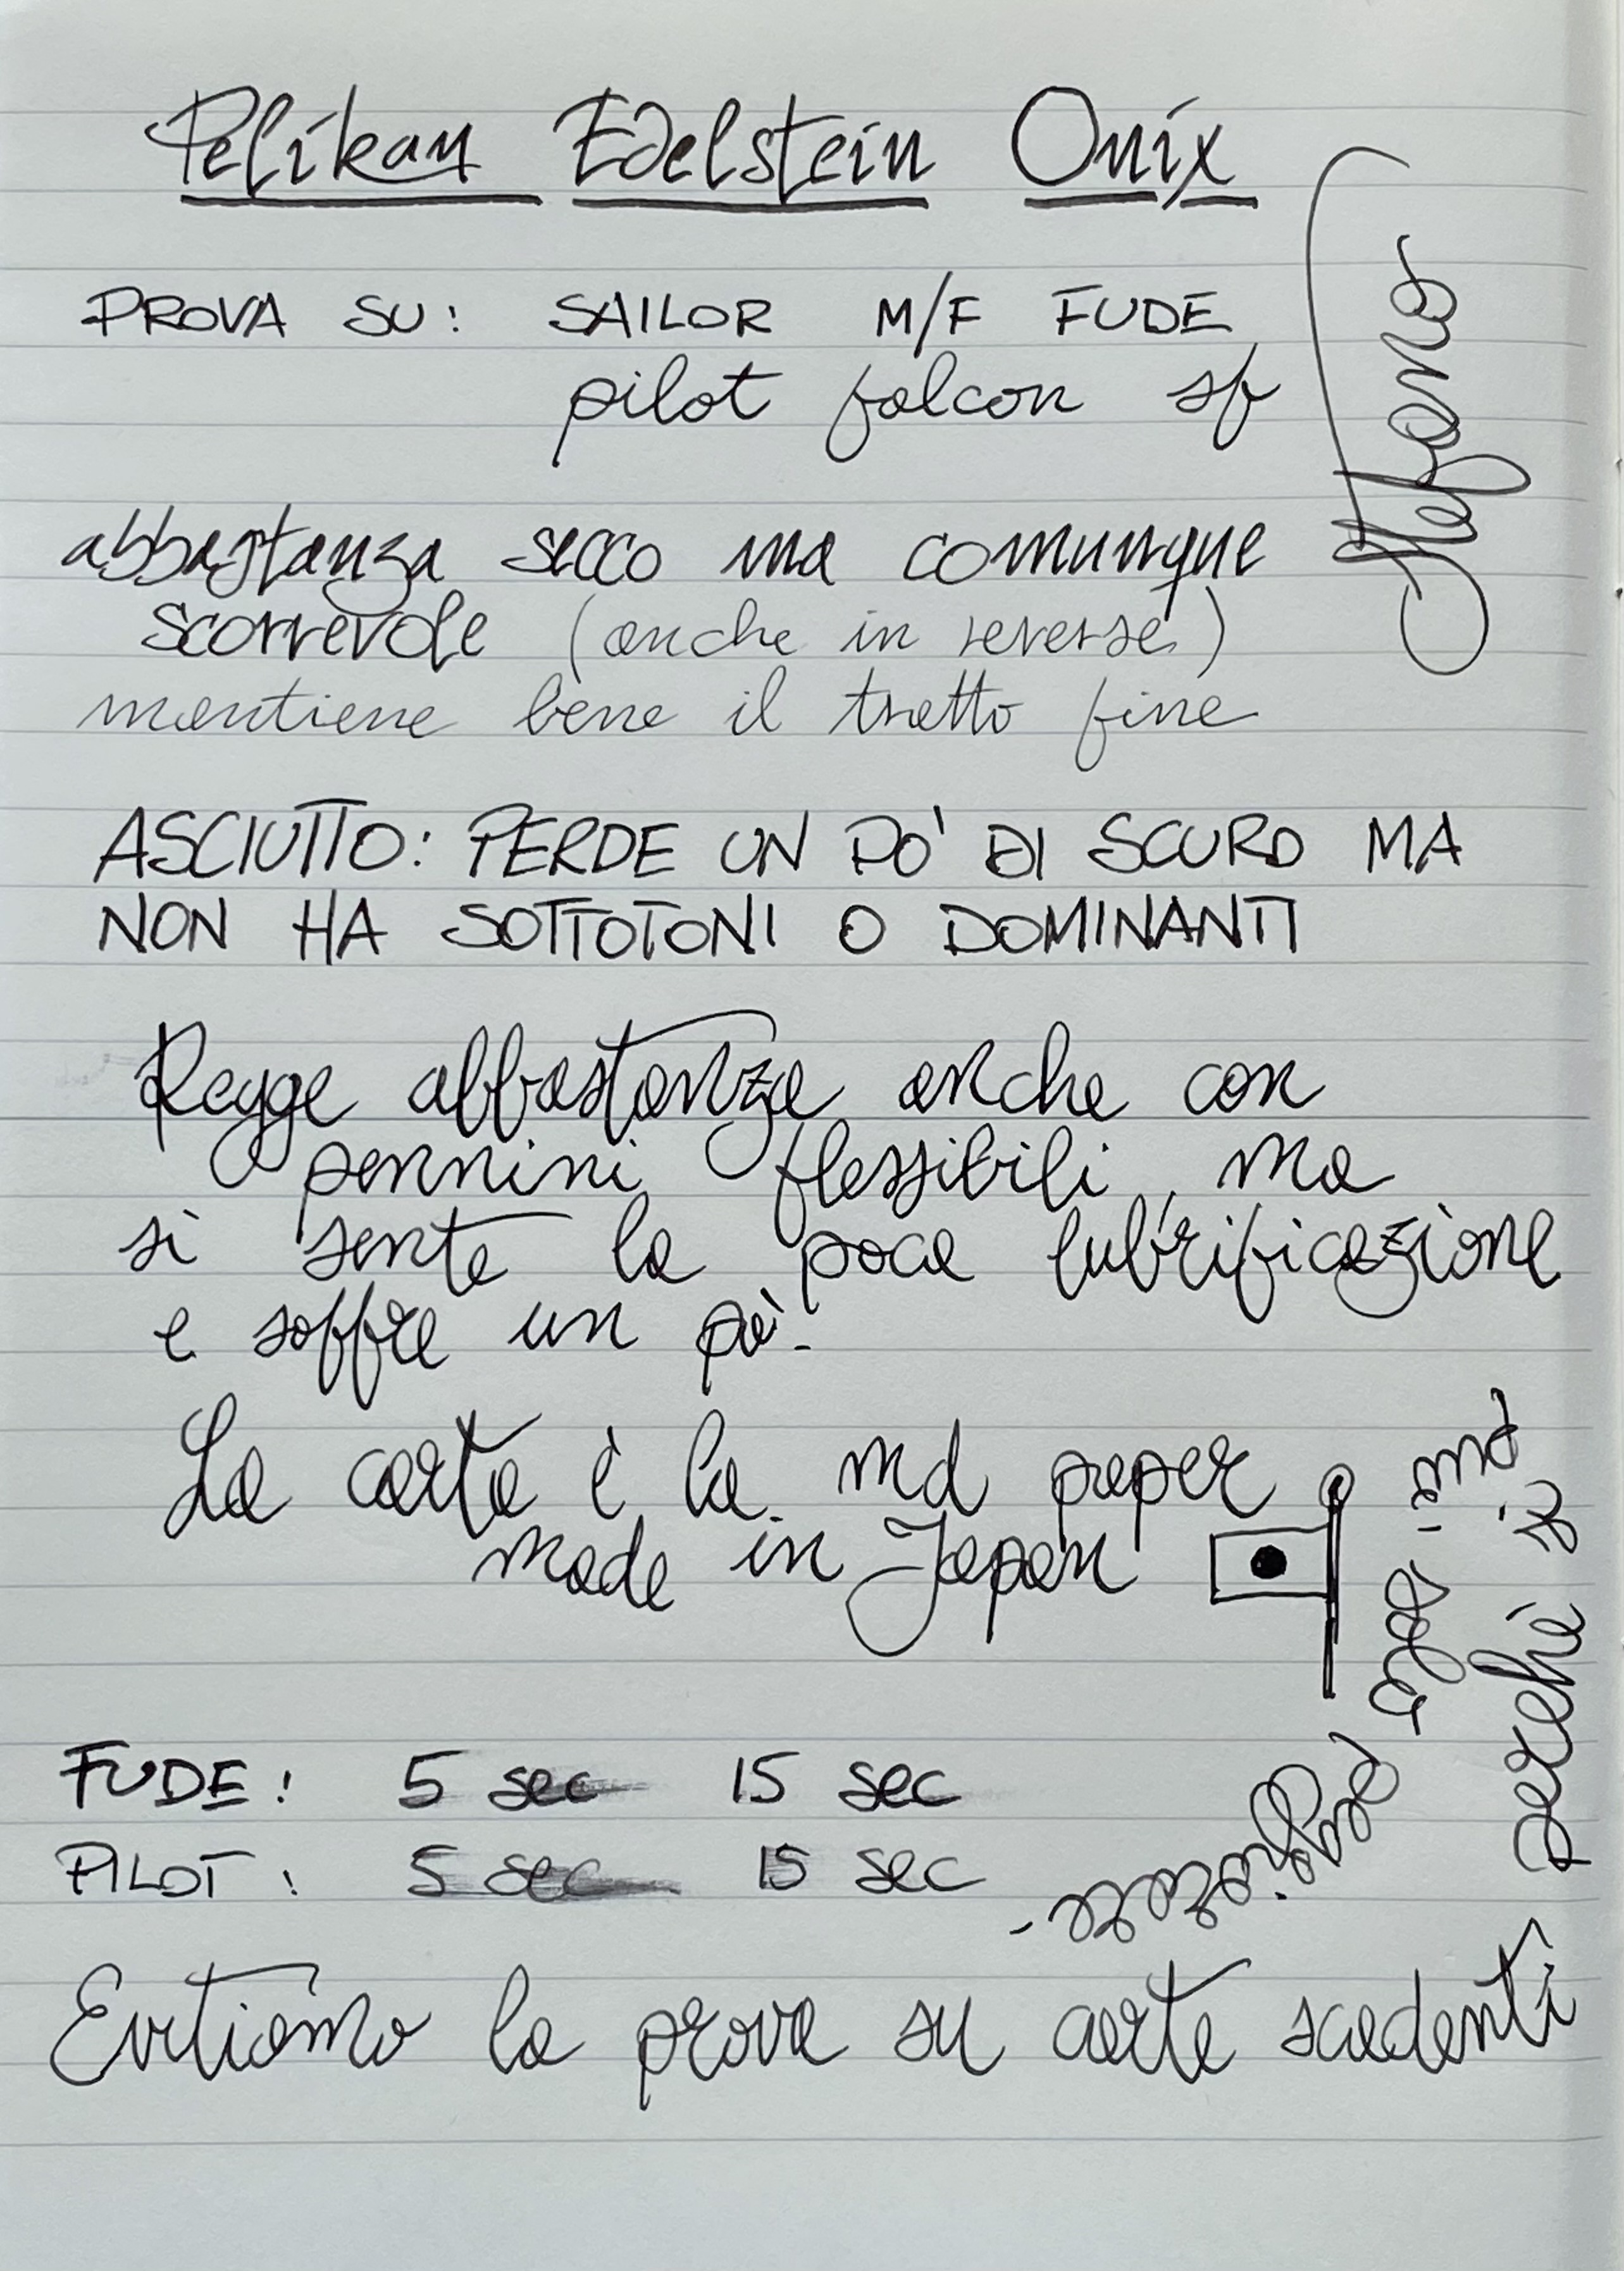 Pelikan Edelstein Onix
PROVA SU: SAILOR M/F FUDE
pilot falcon sf
Stefano
abbastanza secco ma comunque
scorrevole (anche in reverse)
mantiene bene il tratto fine
ASCIUTTO: PERDE UN PO' DI SCURO MA
NON HA SOTTOTONI O DOMINANTI
Regge abbastanza anche con
pennini flessibili, ma
si sente la poca lubrificazione
e soffre un pò.
La carta è la md paper
made in Japan
FUDE: 5 sec 15 sec
PILOT: 5 sec 15 sec
Evitiamo la prova su carte scadenti
perchè si
peggiorare.